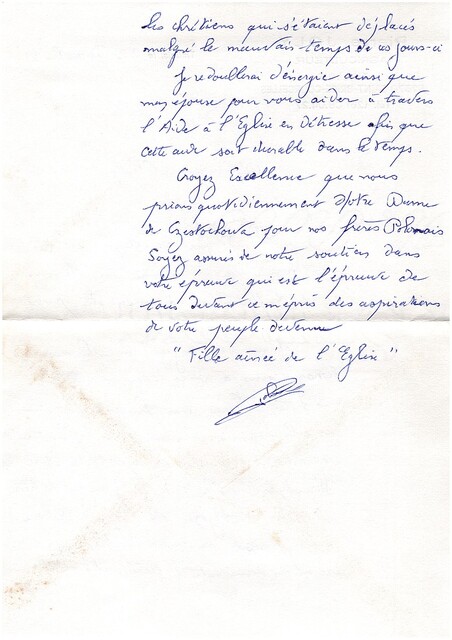 les chrétiens qui s'étaient déplacés
malgré le mauvais temps de ces jours-ci
Je redoublerai d'énergie ainsi que
mon épouse pour vous aider à travers
l'Aide à l'Eglise en Détresse afin que
cette aide soit durable dans le temps.
Croyez Excellence que nous
prions quotidiennement Notre Dame
de Czestochowa pour nos frères Polonais
Soyez assurés de notre soutien dans
votre épreuve qui est l'épreuve de
tous devant ce mépris des aspirations
de votre peuple devenu
"Fille aînée de l'Eglise"